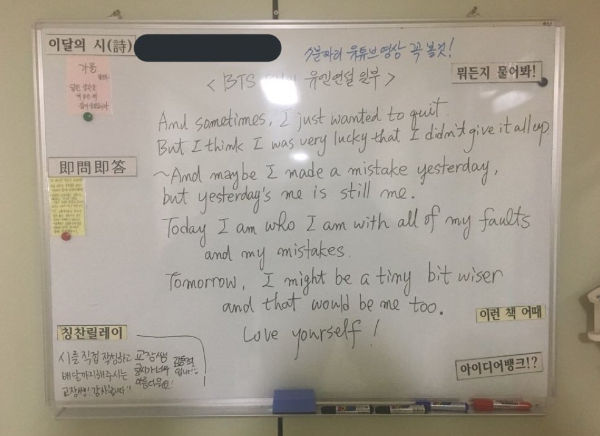 이달의 시(詩)
5분짜리 유튜브 영상 꼭 볼것!
< BTS 유엔연설 일부 >
뭐든지 물어봐!
And sometimes, I just wanted to quit.
But I think I was very lucky that I didn't give it all up
~And maybe I made a mistake yesterday,
but yesterday's me is still me.
Today I am who I am with all of my faults
and my mistakes.
Tomorrow, I might be a tiny bit wiser
and that would be me too.
Love yourself!
即問即答
칭찬릴레이
시를 직접 작성하고
해주시는
교장쌤! 감사합니다
교장쌤
이런 책 어때
아이디어뱅크!?